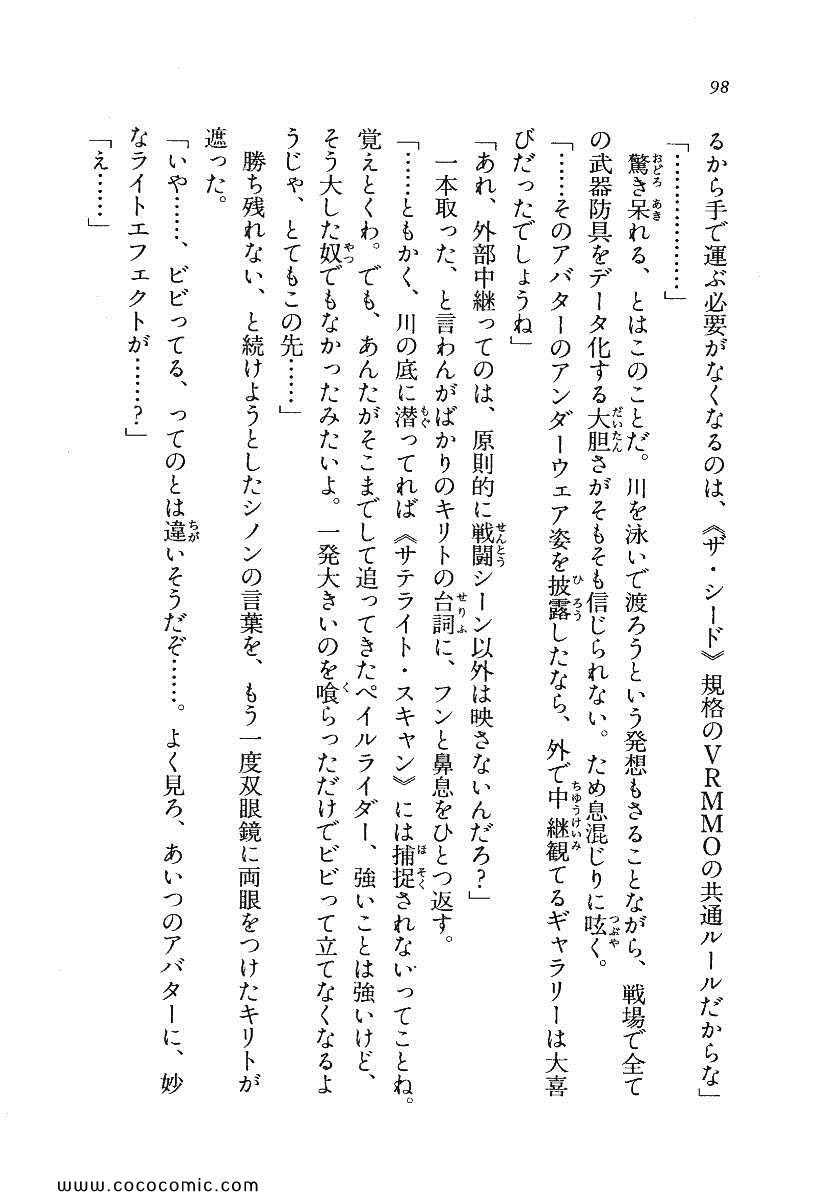 98
るから手で運ぶ必要がなくなるのは、《ザ・シード》規格のVRMMOの共通ルールだからな」
「………………」
驚き呆れる、とはこのことだ。川を泳いで渡ろうという発想もさることながら、戦場で全て
の武器防具をデータ化する大胆さがそもそも信じられない。ため息混じりに呟く。
「……そのアバターのアンダーウェア姿を披露したなら、外で中継観てるギャラリーは大喜
びだったでしょうね」
「あれ、外部中継ってのは、原則的に戦闘シーン以外は映さないんだろ?」
一本取った、と言わんがばかりのキリトの台詞に、フンと鼻息をひとつ返す。
「……ともかく、川の底に潜ってれば《サテライト・スキャン》には捕捉されないってことね。
覚えとくわ。でも、あんたがそこまでして追ってきたペイルライダー、強いことは強いけど、
そう大した奴でもなかったみたいよ。一発大きいのを喰らっただけでビビって立てなくなるよ
うじゃ、とてもこの先……」
勝ち残れない、と続けようとしたシノンの言葉を、もう一度双眼鏡に両眼をつけたキリトが
遮った。
「いや……、ビビってる、ってのとは違いそうだぞ……。よく見ろ、あいつのアバターに、妙
なライトエフェクトが……?」
「え……」
www.cococomic.com